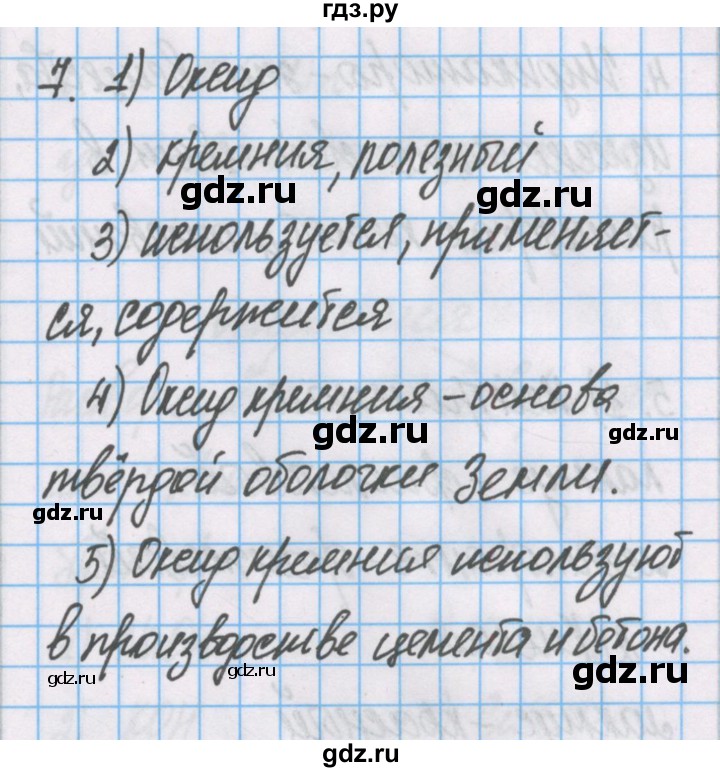 гдз.ру
7. 1) Оксид
2) кремния, полезный
gdz.ru gdz.ru
3) используется, применяет-
ся, содержится
4) Оксид кремния – основа
gdz.ru gdz.ru
твёрдой оболочки Земли.
gdz.ru
5) Оксид кремния используют
в производстве цемента и бетона.
gdz.ru gdz.ru gdz.ru
gdz.ru